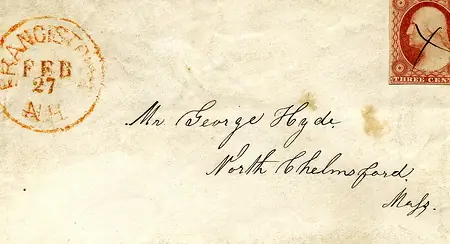 FRANCISTOWN
FEB
27
N.H.
THREE CENT
Mr George Hyde.
North Chelmsford.
Mass.